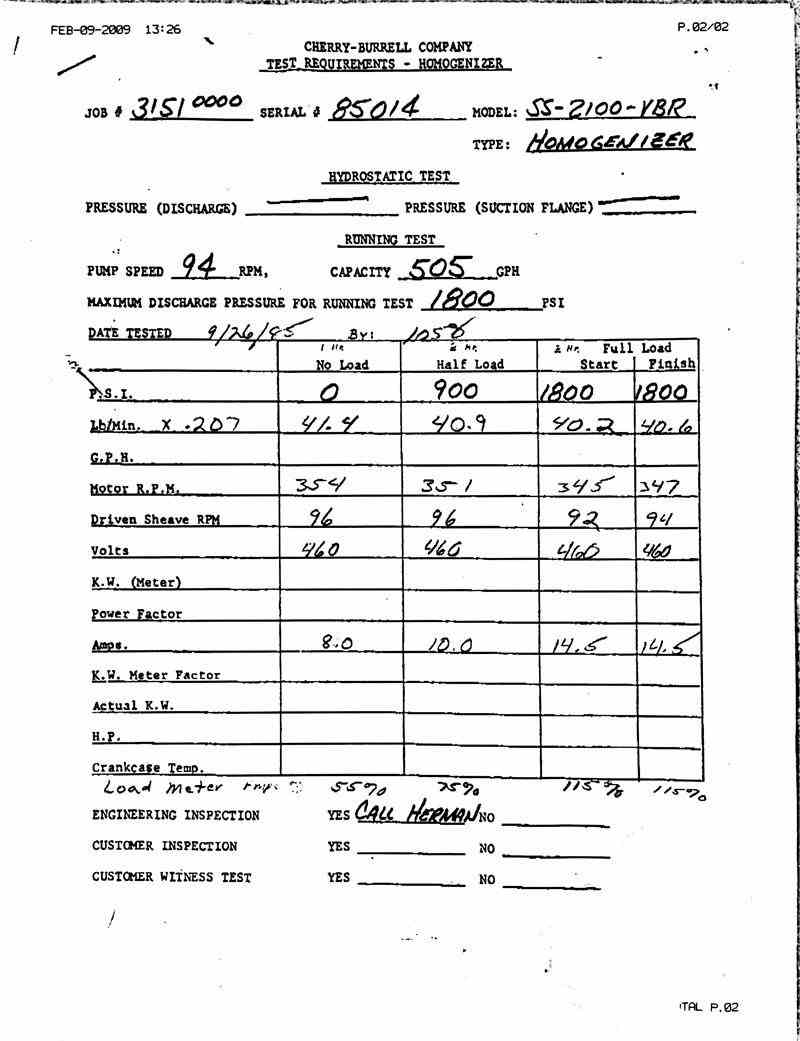 FEB-09-2009 13:26 P.02/02
CHERRY-BURRELL COMPANY
TEST REQUIREMENTS - HOMOGENIZER
JOB # 3151 0000 SERIAL # 85014 MODEL: SS-2100-VBR
TYPE: HOMOGENIZER
HYDROSTATIC TEST
PRESSURE (DISCHARGE) PRESSURE (SUCTION FLANGE)
RUNNING TEST
PUMP SPEED 94 RPM, CAPACITY 505 GPH
MAXIMUM DISCHARGE PRESSURE FOR RUNNING TEST 1800 PSI
DATE TESTED 9/26/85 By: 1058
1 Hr. ½ Hr. ½ Hr. Full Load
No Load Half Load Start Finish
P.S.I. 0 900 1800 1800
Lb/Min. X .207 41.4 40.9 40.2 40.6
G.P.H.
Motor R.P.M. 354 351 345 347
Driven Sheave RPM 96 96 92 94
Volts 460 460 460 460
K.W. (Meter)
Power Factor
Amps. 8.0 10.0 14.5 14.5
K.W. Meter Factor
Actual K.W.
H.P.
Crankcase Temp.
Load Meter 55% 75% 115% 115%
ENGINEERING INSPECTION YES CALL HERMAN NO
CUSTOMER INSPECTION YES NO
CUSTOMER WITNESS TEST YES NO
TAL P.02